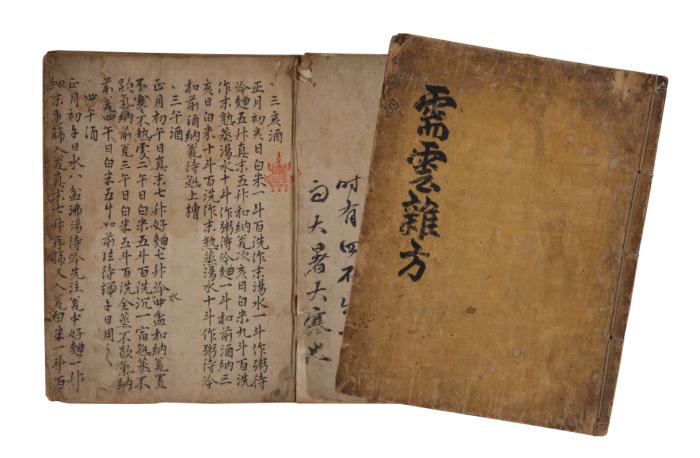 需雲雜方
時有四不
大暑大寒
三亥酒
正月初亥日白米一斗百洗作末湯水一斗作粥待
冷麹五升真末五升和納瓮次亥日白米九斗百洗
作末熟蒸湯水十斗作粥待冷麹一斗和前酒納三
亥日白米十斗百洗作末熟蒸湯水十斗作粥待冷
和前酒納瓮待熟上槽
三午酒
正月初午日真末七升好麹七升冷水四盆和納瓮置
不寒不熱處二午日白米五斗百洗沉一宿熟蒸不
歇氣納前瓮三午日白米五斗百洗全蒸不歇氣納
前瓮四午日白米五斗如前法待端午日用之
四午酒
正月初午日水八盆沸湯待冷先注瓮中好麹一升
細末重篩入瓮真末七升再篩又入瓮白米一斗百